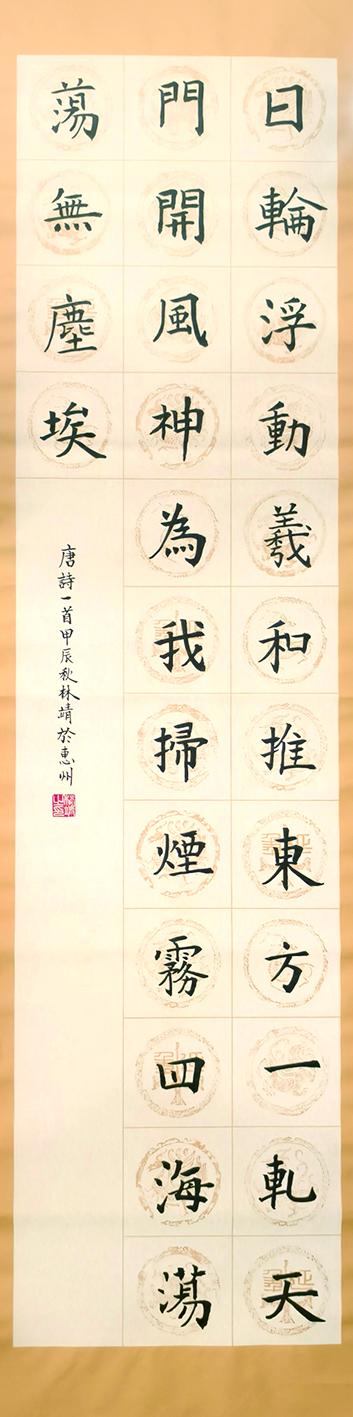 日輪浮動羲和推東方一軋天
門開風神為我掃煙霧四海蕩
蕩無塵埃
唐詩一首甲辰秋林靖於惠州